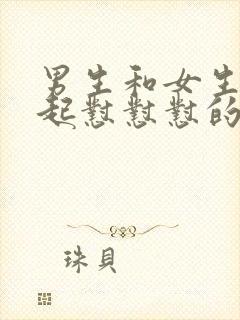 男生和女生
起懟懟懟的
珠貝